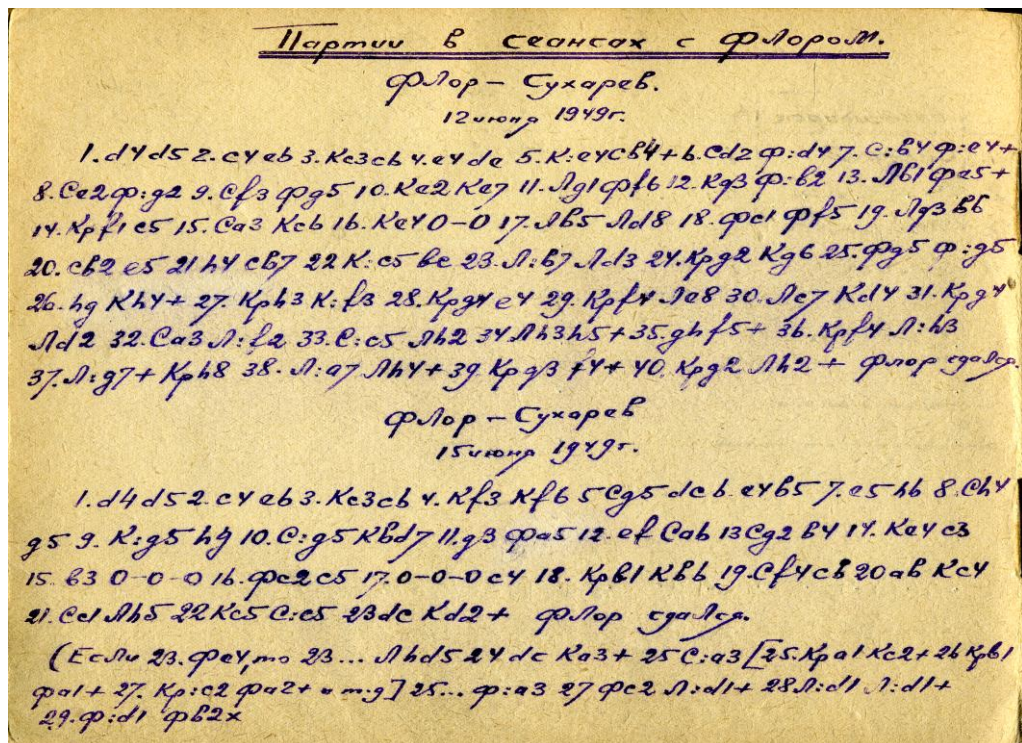 Партии в сеансах с Флором.
Флор – Сухарев.
12 июня 1949г.
1. d4 d5 2. c4 e6 3. Кc3 c6 4. e4 de 5. К:e4 Cв4+ 6. Cd2 Ф:d4 7. C:в4 Ф:e4+
8. Ce2 Ф:g2 9. Cf3 Фg5 10. Кe2 Кe7 11. Лg1 Фf6 12. Кg3 Ф:в2 13. Лв1 Фe5+
14. Крf1 c5 15. Ca3 Кc6 16. Кe4 0-0 17. Лв5 Лd8 18. Фc1 Фf5 19. Лg3 в6
20. Cв2 e5 21 h4 Cв7 22 К:c5 вc 23. Л:в7 Лd3 24. Крg2 Кg6 25. Фg5 Ф:g5
26. hg Кh4+ 27. Крh3 К:f3 28. Крg4 e4 29. Крf4 Лe8 30. Лc7 Кd4 31. Крg4
Лd2 32. Ca3 Л:f2 33. C:c5 Лh2 34 Лh3 h5+ 35. gh f5+ 36. Крf4 Л:h3
37. Л:g7+ Крh8 38. Л:a7 Лh4+ 39. Крg3 f4+ 40. Крg2 Лh2+ Флор сдался.
Флор – Сухарев
15 июня 1949г.
1. d4 d5 2. c4 e6 3. Кc3 c6 4. Кf3 Кf6 5 Cg5 dc 6. e4 в5 7. e5 h6 8. Ch4
g5 9. К:g5 hg 10. C:g5 Квd7 11. g3 Фa5 12. ef Ca6 13 Cg2 в4 14. Кe4 c3
15. в3 0-0-0 16. Фc2 c5 17. 0-0-0 c4 18. Крв1 Кв6 19. Cf4 cв 20 aв Кc4
21. Cc1 Лh5 22 Кc5 C:c5 23 dc Кd2+ Флор сдался.
(Если 23. Фe4, то 23... Лhd5 24 dc Кa3+ 25 C:a3 [25. Крa1 Кc2+ 26 Крв1
Фa1+ 27. Кр:c2 Фa2+ и т.д] 25... Ф:a3 27 Фc2 Л:d1+ 28 Л:d1 Л:d1+
29. Ф:d1 Фв2x